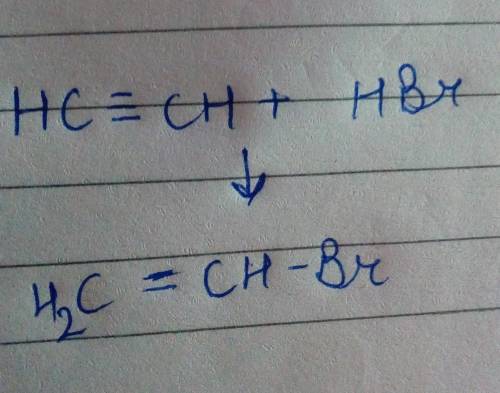 HC ≡ CH + HBr
↓
H₂C = CH - Br